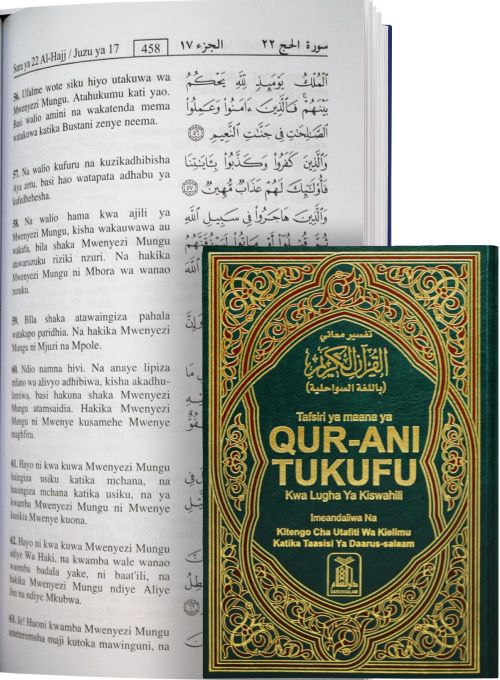 Sura ya 22 Al-Hajj / Juzu ya 17
458
الجزء ١٧
سورة الحج ٢٢
56. Ufalme wote siku hiyo utakuwa wa
Mwenyezi Mungu. Atahukumu kati yao.
Basi walio amini na wakatenda mema
watakuwa katika Bustani zenye neema.
57. Na walio kufuru na kuzikadhibisha
Aya zetu, basi hao watapata adhabu ya
kufedhehesha.
58. Na walio hama kwa ajili ya
Mwenyezi Mungu, kisha wakauwawa au
wakafa, bila shaka Mwenyezi Mungu
atawaruzuku riziki nzuri. Na hakika
Mwenyezi Mungu ni Mbora wa wanao
ruzuku.
59. BIla shaka atawaingiza pahala
watakapo paridhia. Na hakika Mwenyezi
Mungu ni Mjuzi na Mpole.
60. Ndio namna hivi. Na anaye lipiza
mfano wa alivyo adhibiwa, kisha akadhu-
lumiwa, basi hakuna shaka Mwenyezi
Mungu atamsaidia. Hakika Mwenyezi
Mungu ni Mwenye kusamehe Mwenye
maghfira.
61. Hayo ni kwa kuwa Mwenyezi Mungu
huuingiza usiku katika mchana, na
huuingiza mchana katika usiku, na ya
kwamba Mwenyezi Mungu ni Mwenye
kusikia Mwenye kuona.
62. Hayo ni kwa kuwa Mwenyezi Mungu
ndiye Wa Haki, na kwamba wale wanao
waomba badala yake, ni baat'ili, na
hakika Mwenyezi Mungu ndiye Aliye
Juu na ndiye Mkubwa.
63. Je! Huoni kwamba Mwenyezi Mungu
ameteremsha maji kutoka mawinguni, na
ٱلْمُلْكُ يَوْمَئِذٍ لِّلَّهِ يَحْكُمُ
بَيْنَهُمْ فَٱلَّذِينَ ءَامَنُوا۟ وَعَمِلُوا۟
ٱلصَّـٰلِحَـٰتِ فِى جَنَّـٰتِ ٱلنَّعِيمِ ٥٦
وَٱلَّذِينَ كَفَرُوا۟ وَكَذَّبُوا۟ بِـَٔايَـٰتِنَا
فَأُو۟لَـٰٓئِكَ لَهُمْ عَذَابٌ مُّهِينٌ ٥٧
وَٱلَّذِينَ هَاجَرُوا۟ فِى سَبِيلِ ٱللَّهِ
تفسير معاني
القرآن الكريم
(باللغة السواحلية)
Tafsiri ya maana ya
QUR-ANI
TUKUFU
Kwa Lugha Ya Kiswahili
Imeandaliwa Na
Kitengo Cha Utafiti Wa Kielimu
Katika Taasisi Ya Daarus-salaam
DARUSSALAM